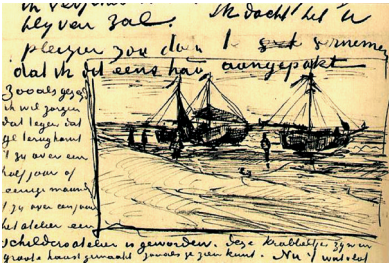 blyven zal. Ik dacht het U
plezier zou doen te vernemen
dat ik dit eens had aangepakt
Zooals gezegd
ik wil zorgen
dat tegen dat
ge terugkomt
't zy over een
half jaar of
eenige maand
't zy over een jaar
het atelier een
schildersatelier is geworden. deze krabbeltjes zyn in
groote haast gemaakt zooals je zien kunt. Nu